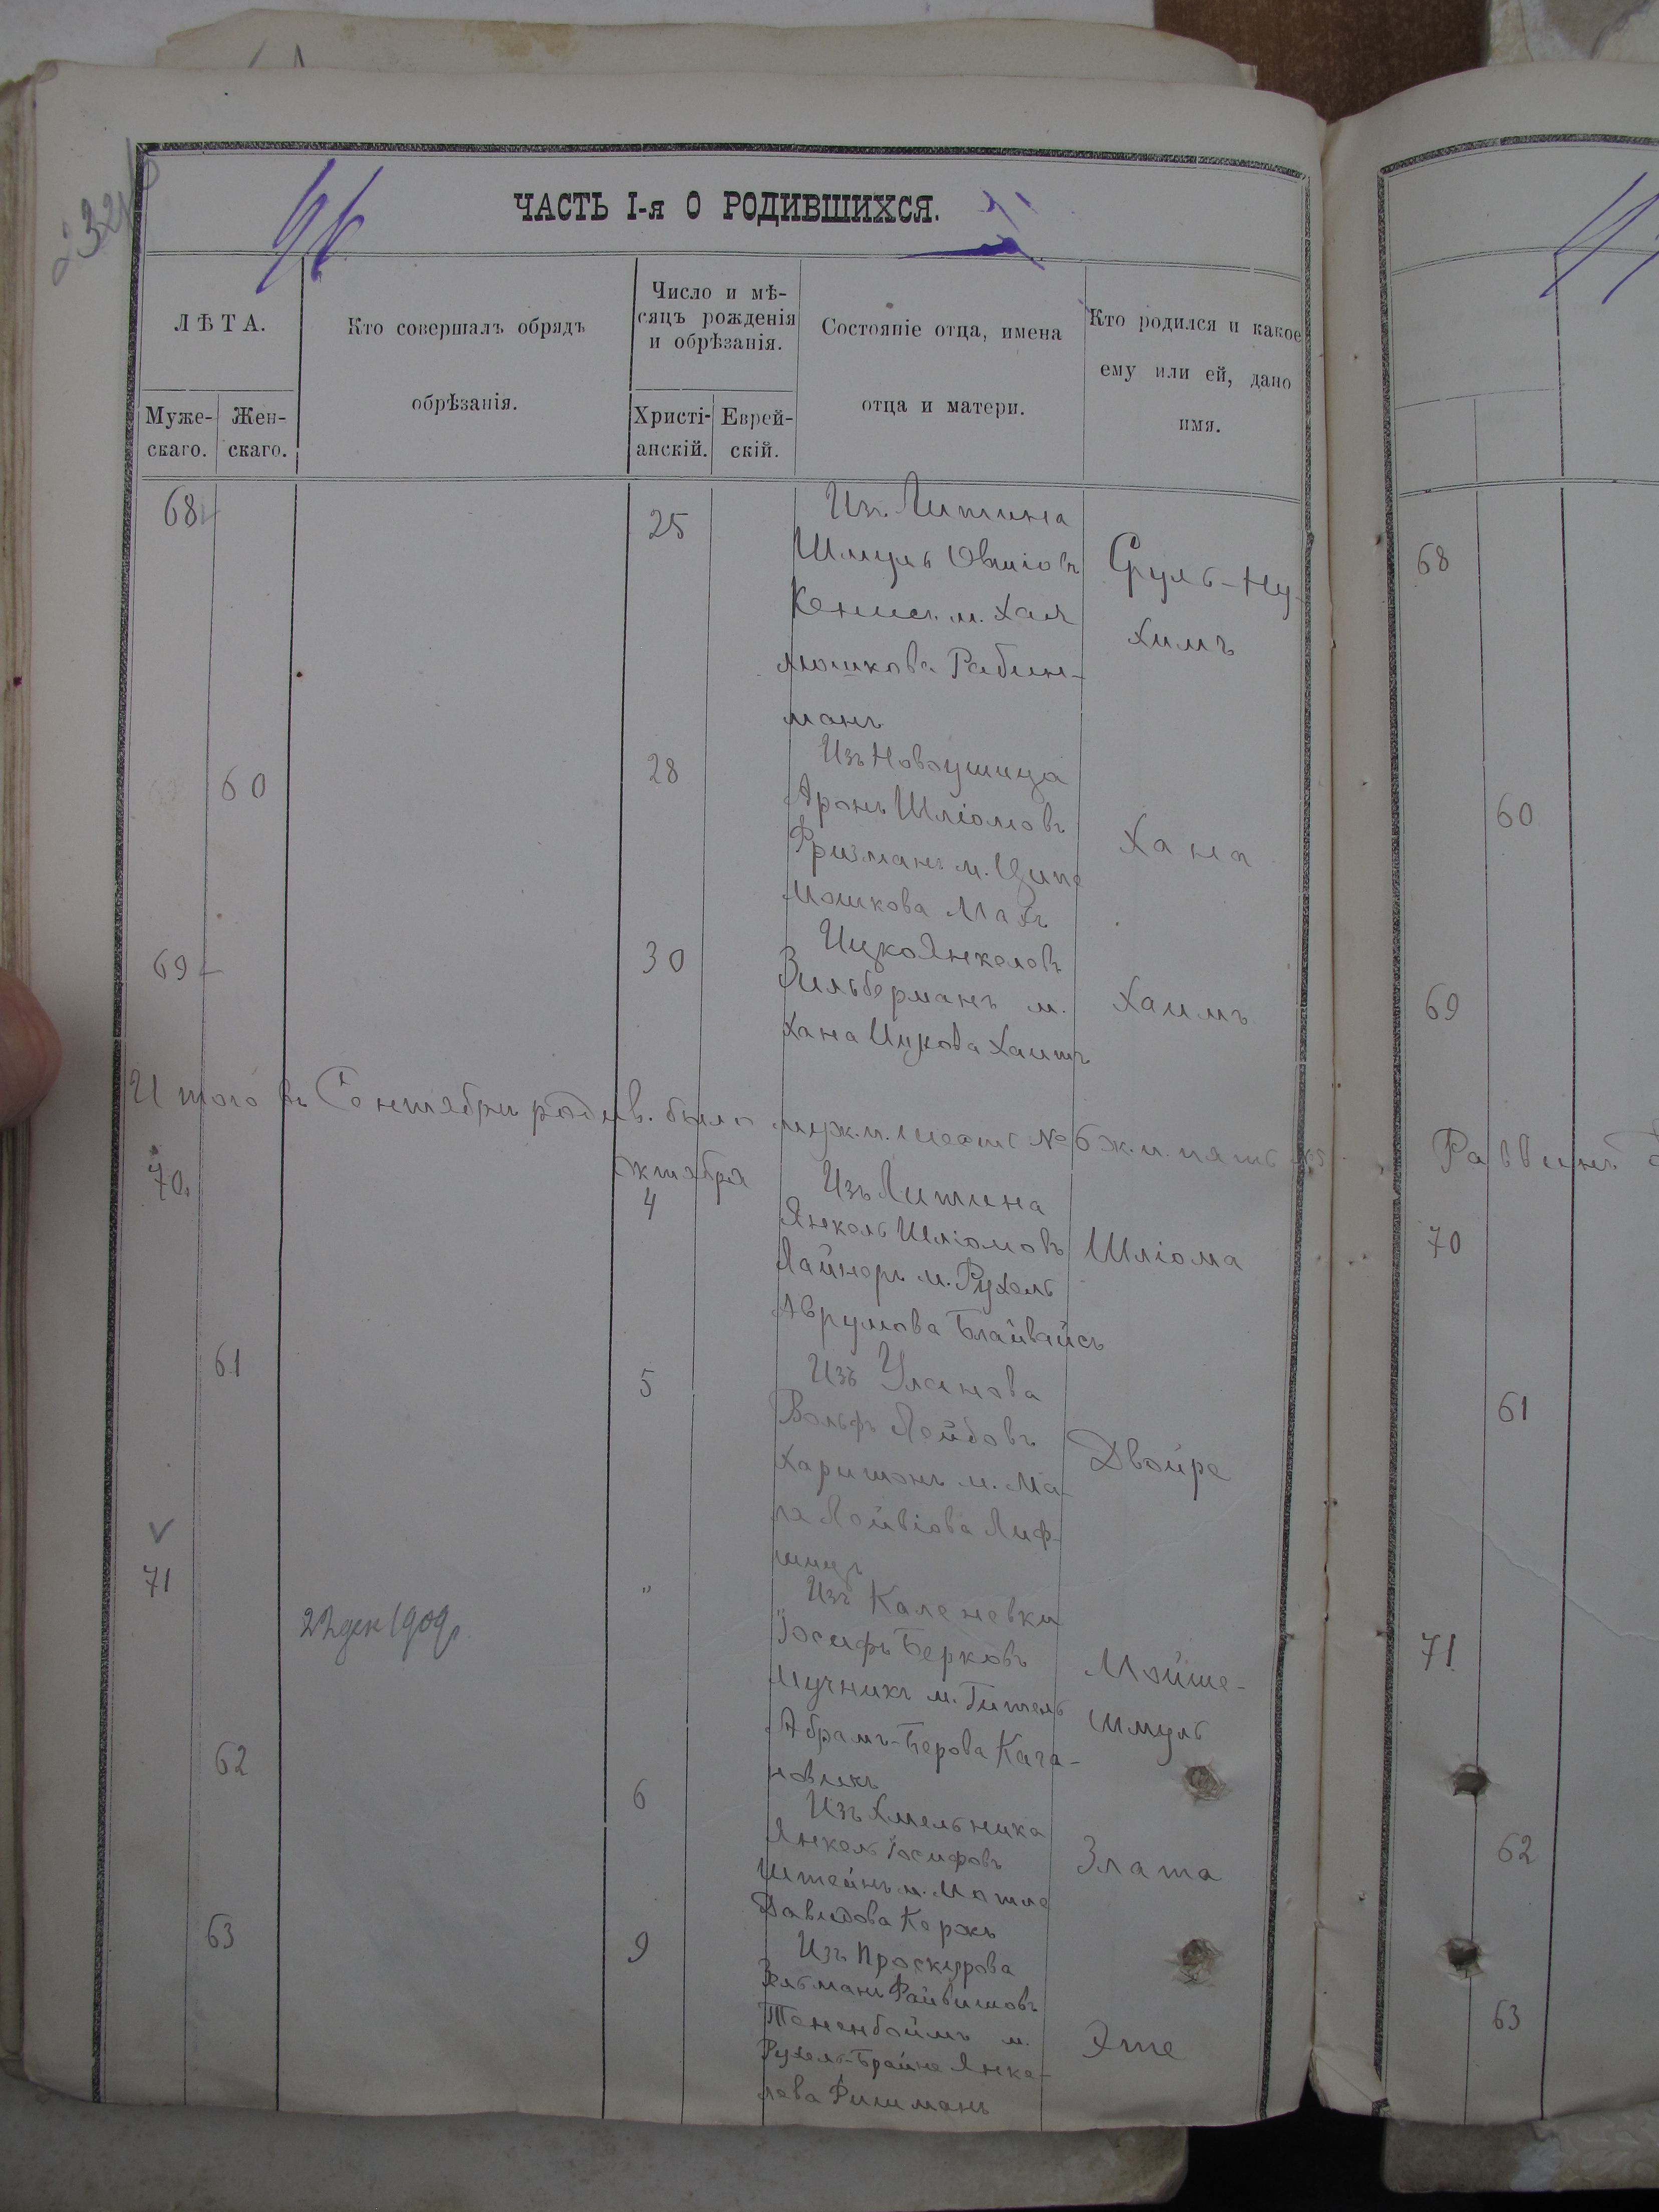 ЧАСТЬ I-я О РОДИВШИХСЯ.
ЛѢТА.
Муже-
скаго.
Жен-
скаго.
Кто совершалъ обрядъ
обрѣзанія.
Число и мѣ-
сяцъ рожденія
и обрѣзанія.
Христі-
анскій.
Еврей-
скій.
Состояніе отца, имена
отца и матери.
Кто родился и какое
ему или ей, дано
имя.
68
25
Изъ Литина
Шмуль
м. Хая
Мошкова Рабин-
манъ
Сруль-Ну-
химъ
68
60
28
Изъ Новоушица
Аронъ Шліомовъ
Фризманъ м. Ципе
Мошкова Махъ
Хана
60
69
30
Ицко Янкелевъ
Зильберманъ м.
Хана Ицкова Хаитъ
Хаимъ
69
Итого въ Сентябри родив. было муж. п. шесть № 6 ж. п. пять №5
Раввинъ
70.
Октября
4
Изъ Литина
Янкель Шліомовъ
Лайнеръ м. Рухель
Аврумова Блайвайсъ
Шліома
70
61
5
Изъ Уланова
Вольфъ Лейбовъ
Харитонъ м. Ма-
ля Лейвіова Лиф-
шицъ
Двойре
61
71
"
22 дек 1909г.
Изъ Каленевки
Іосифъ Берковъ
Мучникъ м. Гитель
Абрамъ-Берова Кага-
новичъ
Мойше-
Шмуль
71
62
6
Изъ Хмельника
Янкель Іосифовъ
Штейнъ м. Мотле
Давидова Кержъ
Злата
62
63
9
Изъ Проскурова
Зельманъ Файвишовъ
Тененбоймъ м.
Рухель-Брайне Янке-
лева Фишманъ
Эте
63